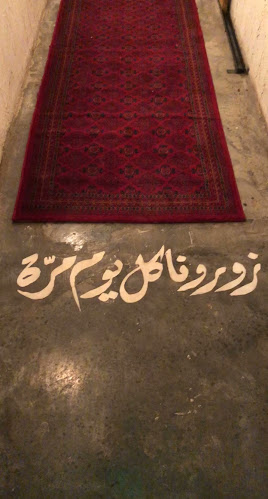 زورونا كل يوم مرّة